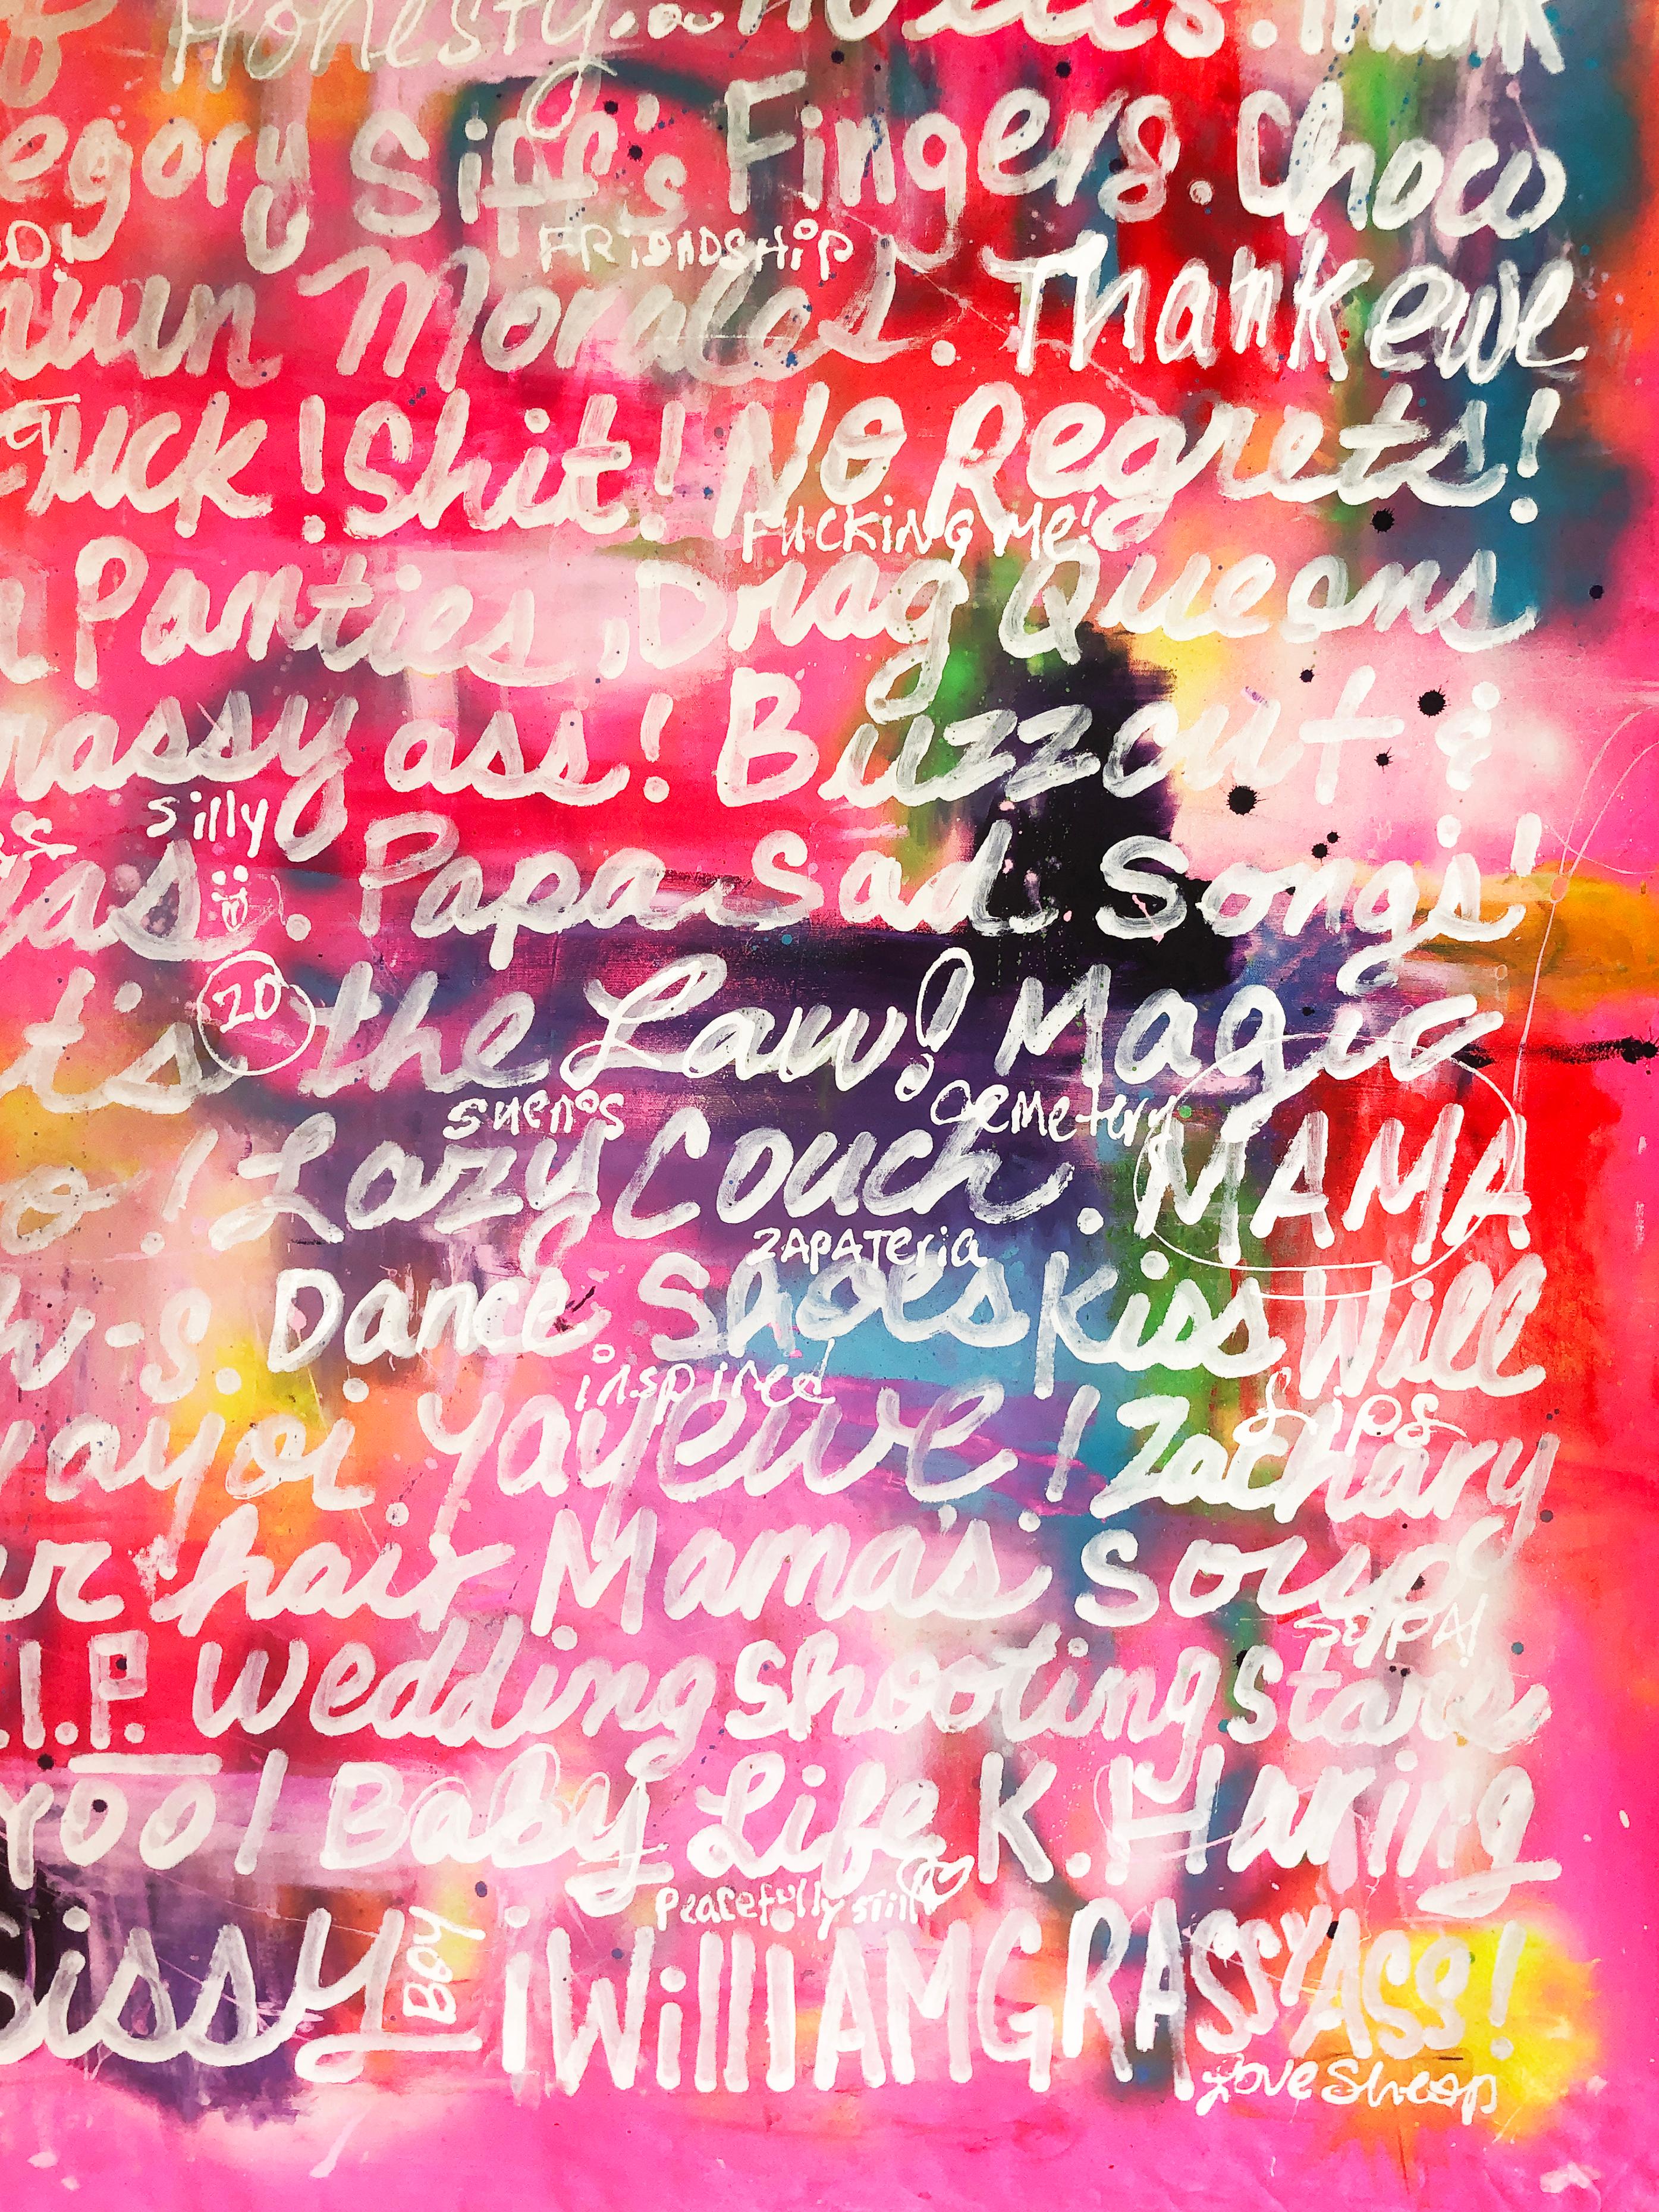 Honesty... No Lies. Thank
egory Siff's Fingers. Choco
FRiENDSHiP
Morales. Thankewe
Fuck! Shit! No Regrets!
FUCKiNG Me!
Panties, Drag Queens
rassy ass! Buzzcut &
silly
ias. Papa Sad. Songs!
t's 20 the Law! Magic
sueños cemetery
o! Lazy Couch. MAMA
ZAPATeria
w-s. Dance. Shoes Kiss Will
inspired
ayor. Yayewe! Zachary
ur hair Mama's Soup
SOPA!
.I.P. Wedding Shooting Stars
Yoo! Baby Life K. Haring
Peacefully still
Sissy BOY ¡WillIAMGRASSYASS!
Love Sheep